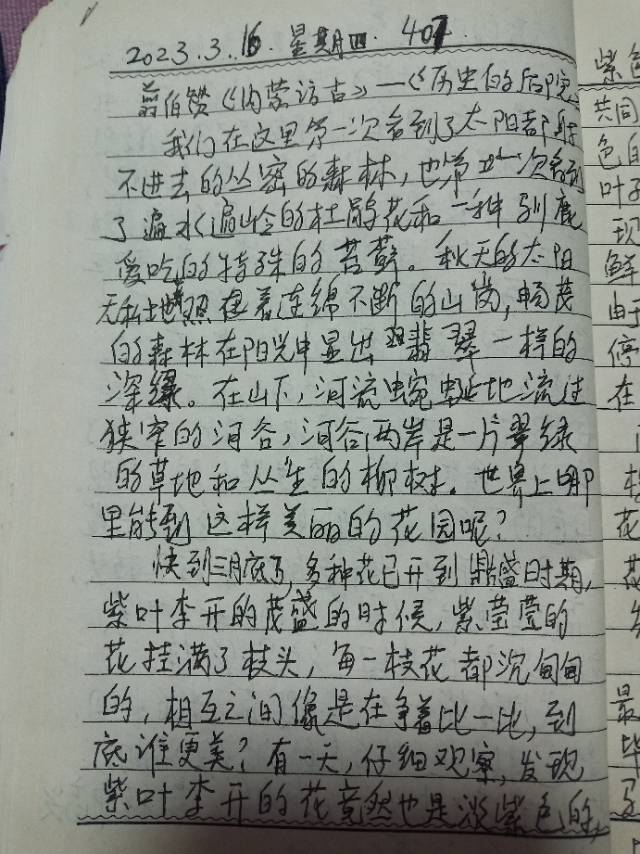 2023.3.16. 星期四. 407.
翦伯赞《内蒙访古》—《历史的后院
我们在这里第一次看到了太阳都射
不进去的丛密的森林，也第一次看到
了遍水遍岭的杜鹃花和一种驯鹿
爱吃的特殊的苔藓。秋天的太阳
无私地照在着连绵不断的山岗，畅茂
的森林在阳光中显出翡翠一样的
深绿。在山下，河流蜿蜒地流过
狭窄的河谷，河谷两岸是一片翠绿
的草地和丛生的柳树。世界上哪
里能到这样美丽的花园呢？
快到三月底了，多种花已开到鼎盛时期，
紫叶李开的茂盛的时候，紫莹莹的
花挂满了枝头，每一枝花都沉甸甸
的，相互之间像是在争着比一比，到
底谁更美？有一天，仔细观察，发现
紫叶李开的花竟然也是淡紫色的，
紫色
共同
色自
叶子
现
鲜
由于
停
在
花
花
最
毕